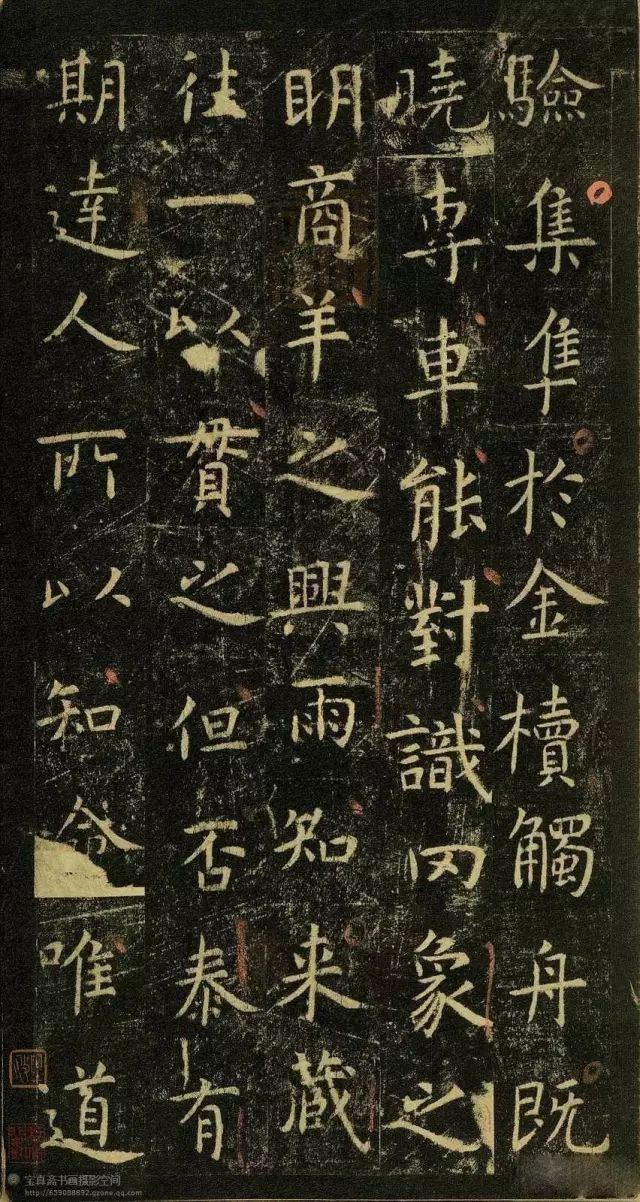 驗集隼於金櫝觸舟既
曉專車能對識罔象之
明商羊之興雨知来蔵
往一以貫之但否泰有
期達人所以知命唯道
宝真斋书画摄影空间
http://659088892.qzone.qq.com